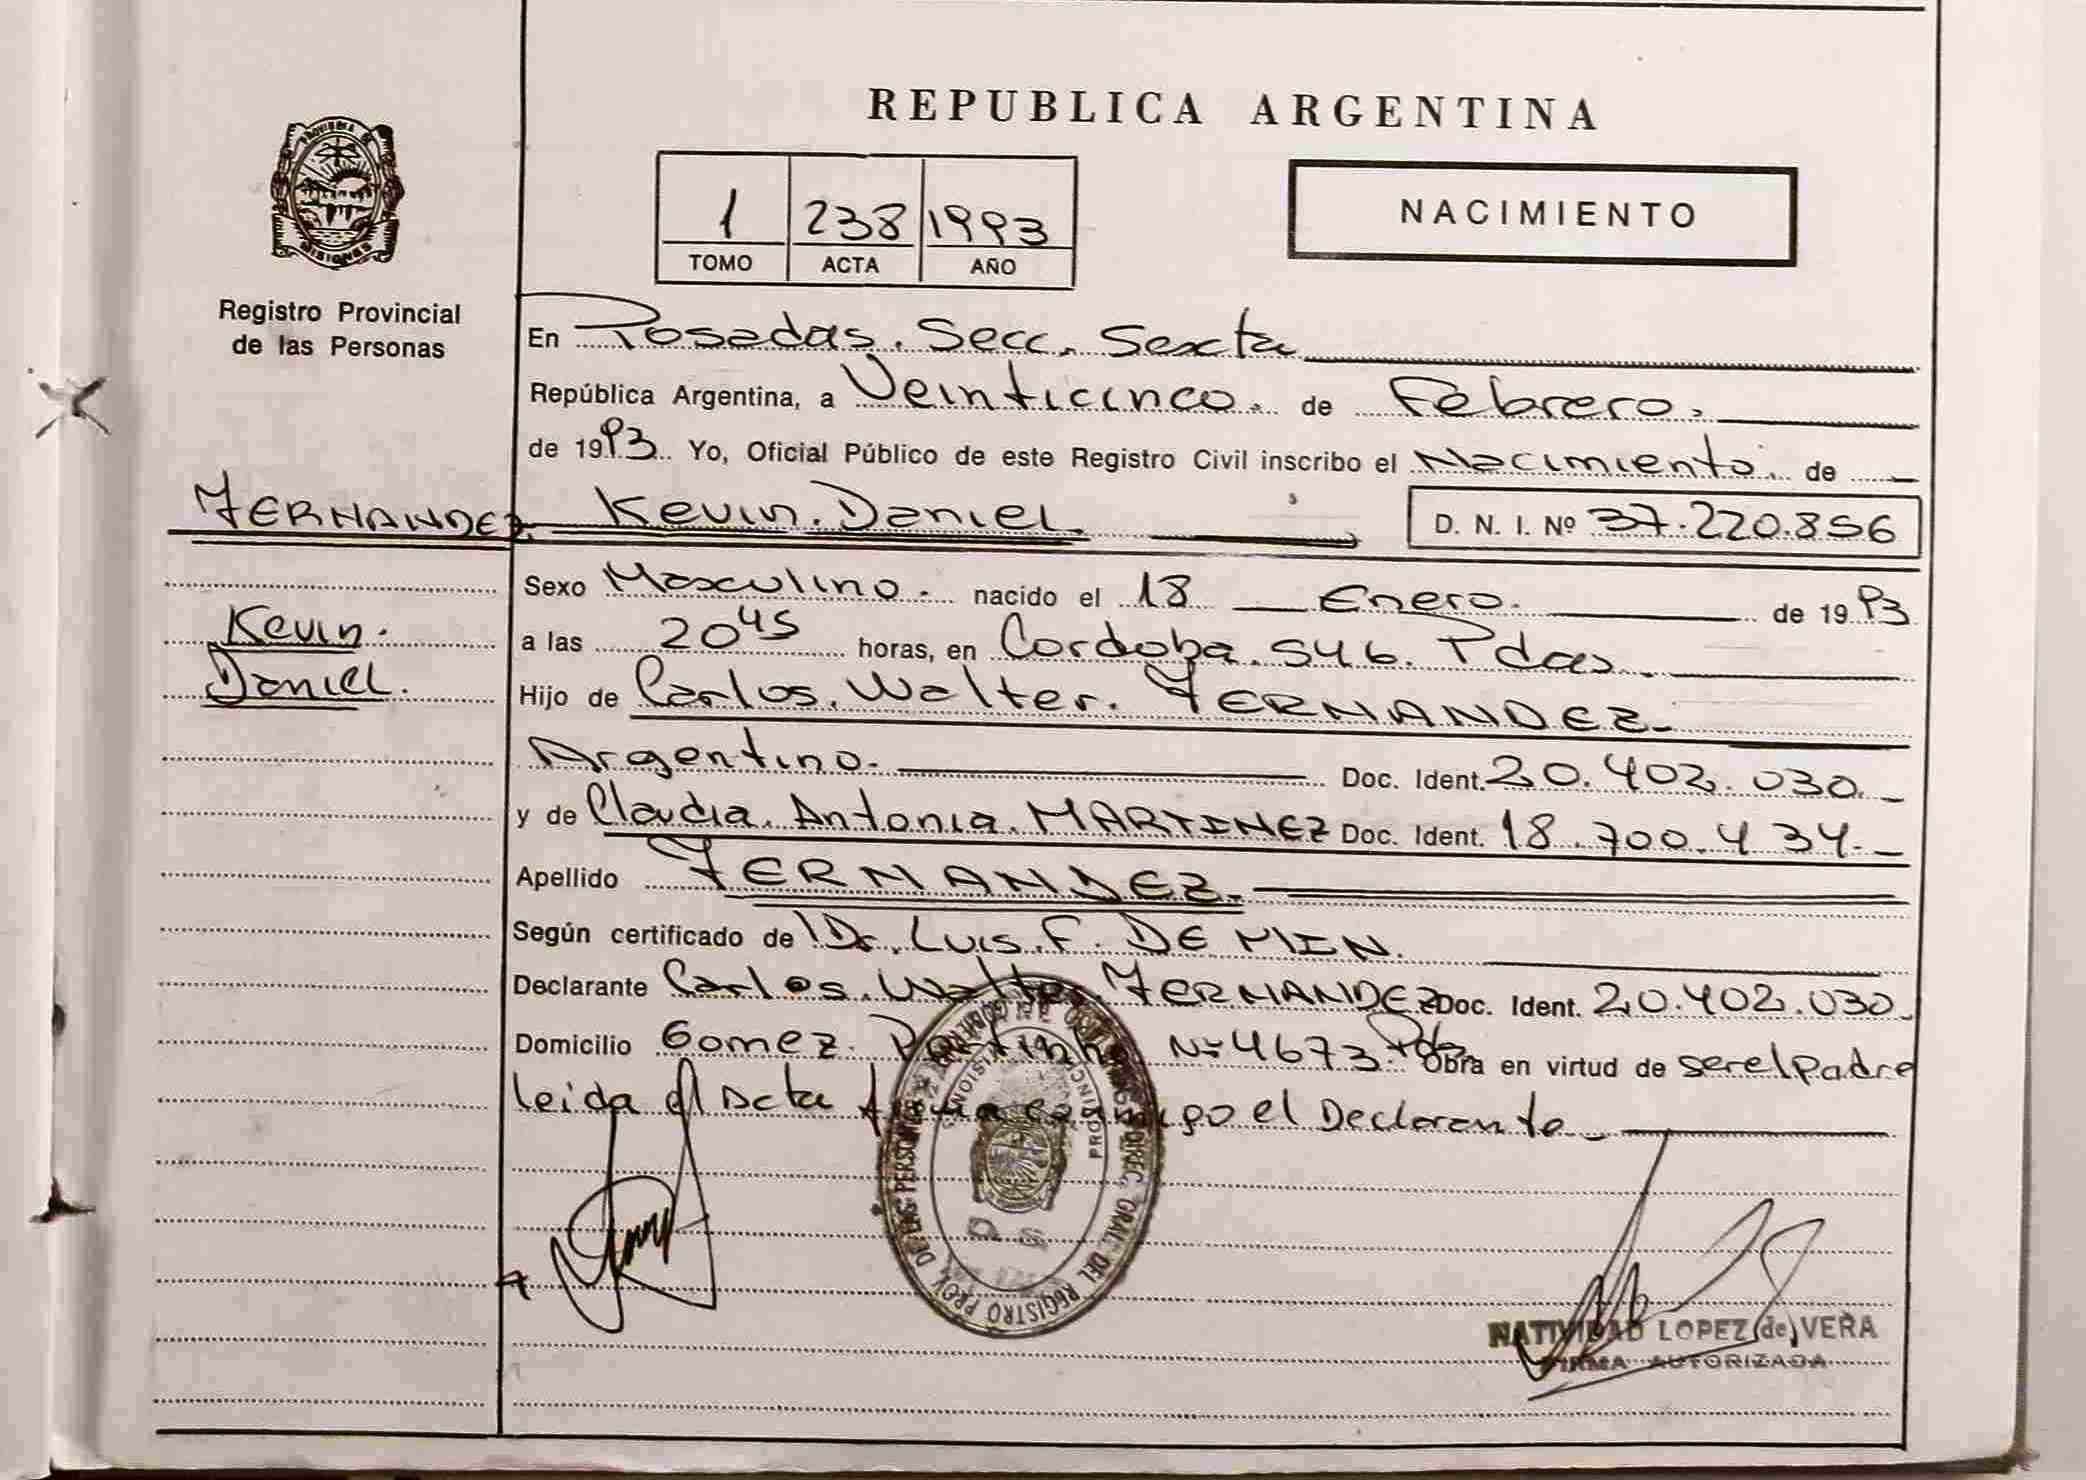 REPUBLICA ARGENTINA
PROVINCIA DE
MISIONES
Registro Provincial
de las Personas
1 238 1993
TOMO ACTA AÑO
NACIMIENTO
En Posadas. Secc. Sexta
República Argentina, a Veinticinco. de Febrero.
de 1993. Yo, Oficial Público de este Registro Civil inscribo el Nacimiento. de
FERNANDEZ. Kevin. Daniel. D. N. I. Nº 37.220.856
Sexo Masculino. nacido el 18 Enero. de 1993
Kevin.
a las 20 45 horas, en Cordoba. 546. Pdas
Daniel.
Hijo de Carlos. Walter. FERNANDEZ.
Argentino. Doc. Ident. 20.402.030.
y de Claudia. Antonia. MARTINEZ Doc. Ident. 18.700.434.
Apellido FERNANDEZ.
Según certificado de Dr. Luis. F. DE MIN.
Declarante Carlos. Walter FERNANDEZ Doc. Ident. 20.402.030
Domicilio Gomez. Nº 4673. Pdas Obra en virtud de ser el padre
leida el Acta firma conmigo el Declarante
DIREC. GRAL. DEL REGISTRO PROV. DE LAS PERSONAS
PROVINCIA MISIONES
NATIVIDAD LOPEZ (de) VERA
FIRMA AUTORIZADA